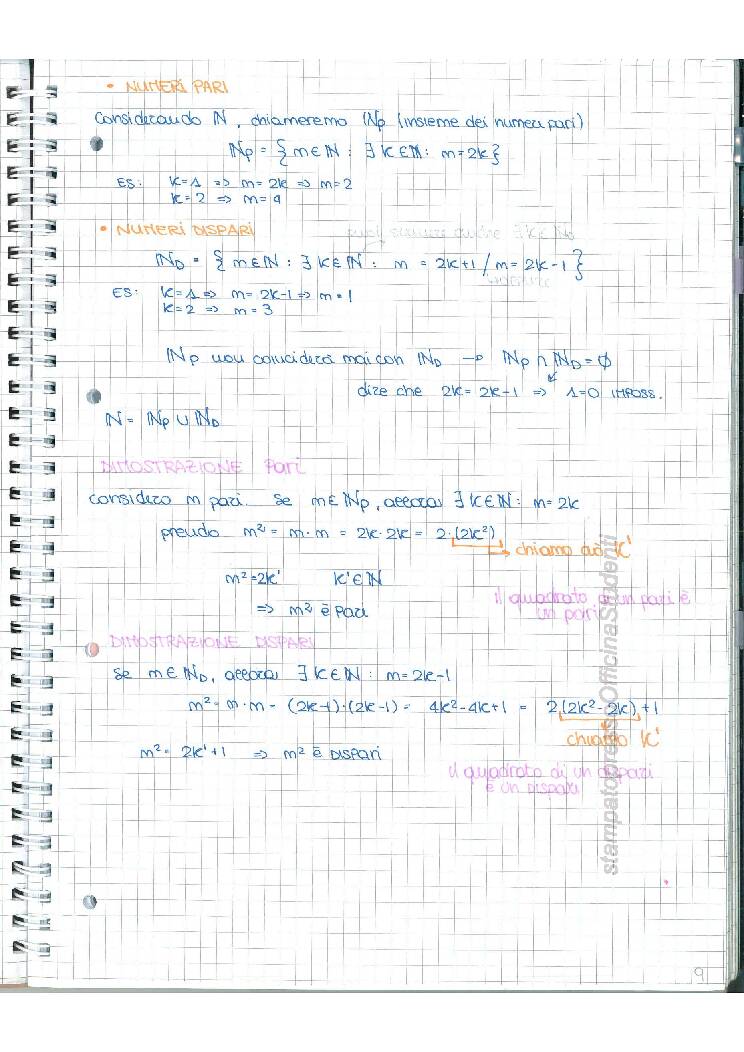 • NUMERI PARI
Considerando ℕ, chiameremo ℕp (insieme dei numeri pari)
ℕp = { m∈ℕ : ∃ K∈ℕ: m=2k}
ES: K=1 => m=2k => m=2
K=2 => m=4
• NUMERI DISPARI
puoi scrivere anche ∃ K∈ℕ0
ℕD = { m∈ℕ : ∃ K∈ℕ : m = 2k+1 / m=2k-1 }
ES: K=1 => m=2k-1 => m=1
K=2 => m=3
ℕp non coinciderà mai con ℕD → ℕp ∩ ℕD = ∅
dire che 2k = 2k-1 => 1=0 IMPOSS.
ℕ = ℕp ∪ ℕD
DIMOSTRAZIONE Pari
considero m pari. Se m∈ℕp, allora ∃ K∈ℕ: m=2k
prendo m² = m·m = 2k·2k = 2·(2k²)
chiamo ciò K'
m²=2k' K'∈ℕ
=> m² è pari
il quadrato di un pari è
un pari
DIMOSTRAZIONE DISPARI
Se m∈ℕD, allora ∃ K∈ℕ: m=2k-1
m² = m·m = (2k-1)·(2k-1) = 4k²-4k+1 = 2(2k²-2k)+1
chiamo K'
m² = 2k'+1 => m² è DISPARI
il quadrato di un dispari
è un dispari
stampatopressoOfficinaStudenti
9